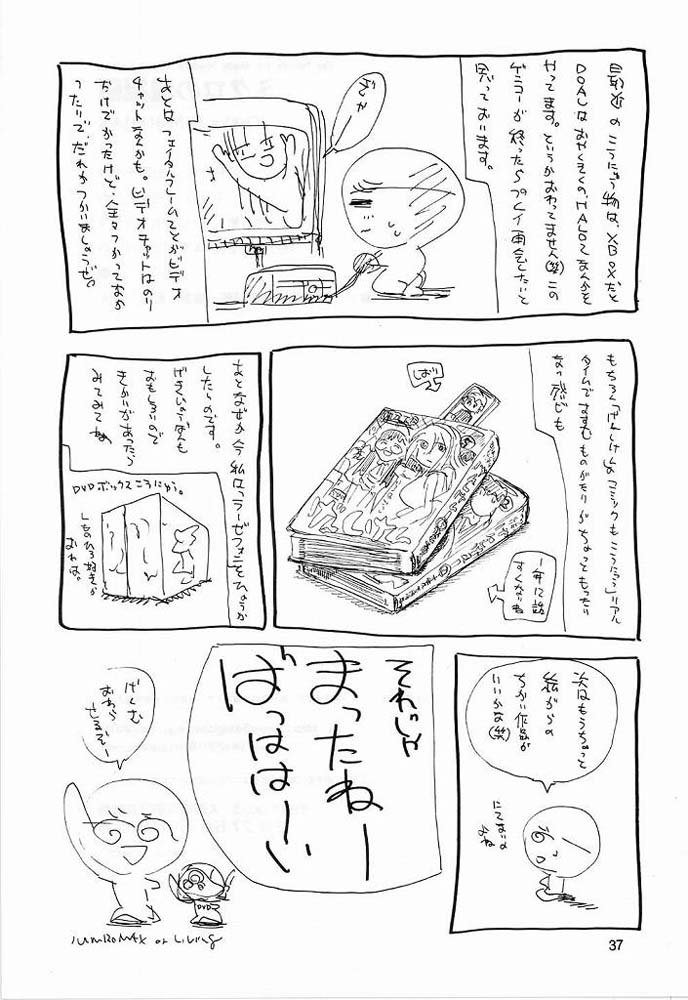 最近のこうにゅう物は、XBOXだと
DOAUはおやくそく、HALO2なんかを
やってます。というかおわってません(笑)この
ゲンコーが終ったらプレイ再会したいと
思っております。
あとはフェイタルフレームてとかビデオ
チャットなんかも。ビデオチャットはのり
だけでかったけど、全々つかってなか
ったりで、だれかつかいましょうぜ。
もちろん「げんしけん」のコミックもこうにゅう」リアル
タイムですすむものがたりがちょっともったい
ない感じも
しおり
1年に1話
すくないね
げんしけん
あとなぜか今私は、ラーゼフォンをひょうか
したいのです。
げきじょうばんも
おもしろいので
きかいがあったら
みてみてね
DVDボックスこうにゅう。
次はもうちょって
絵がらの
ちかい作品が
いいかな(笑)
にてないの
よね
それじゃ
まったねー
ばっははーい
げんむ
おわら
せるぞー
DVD
37